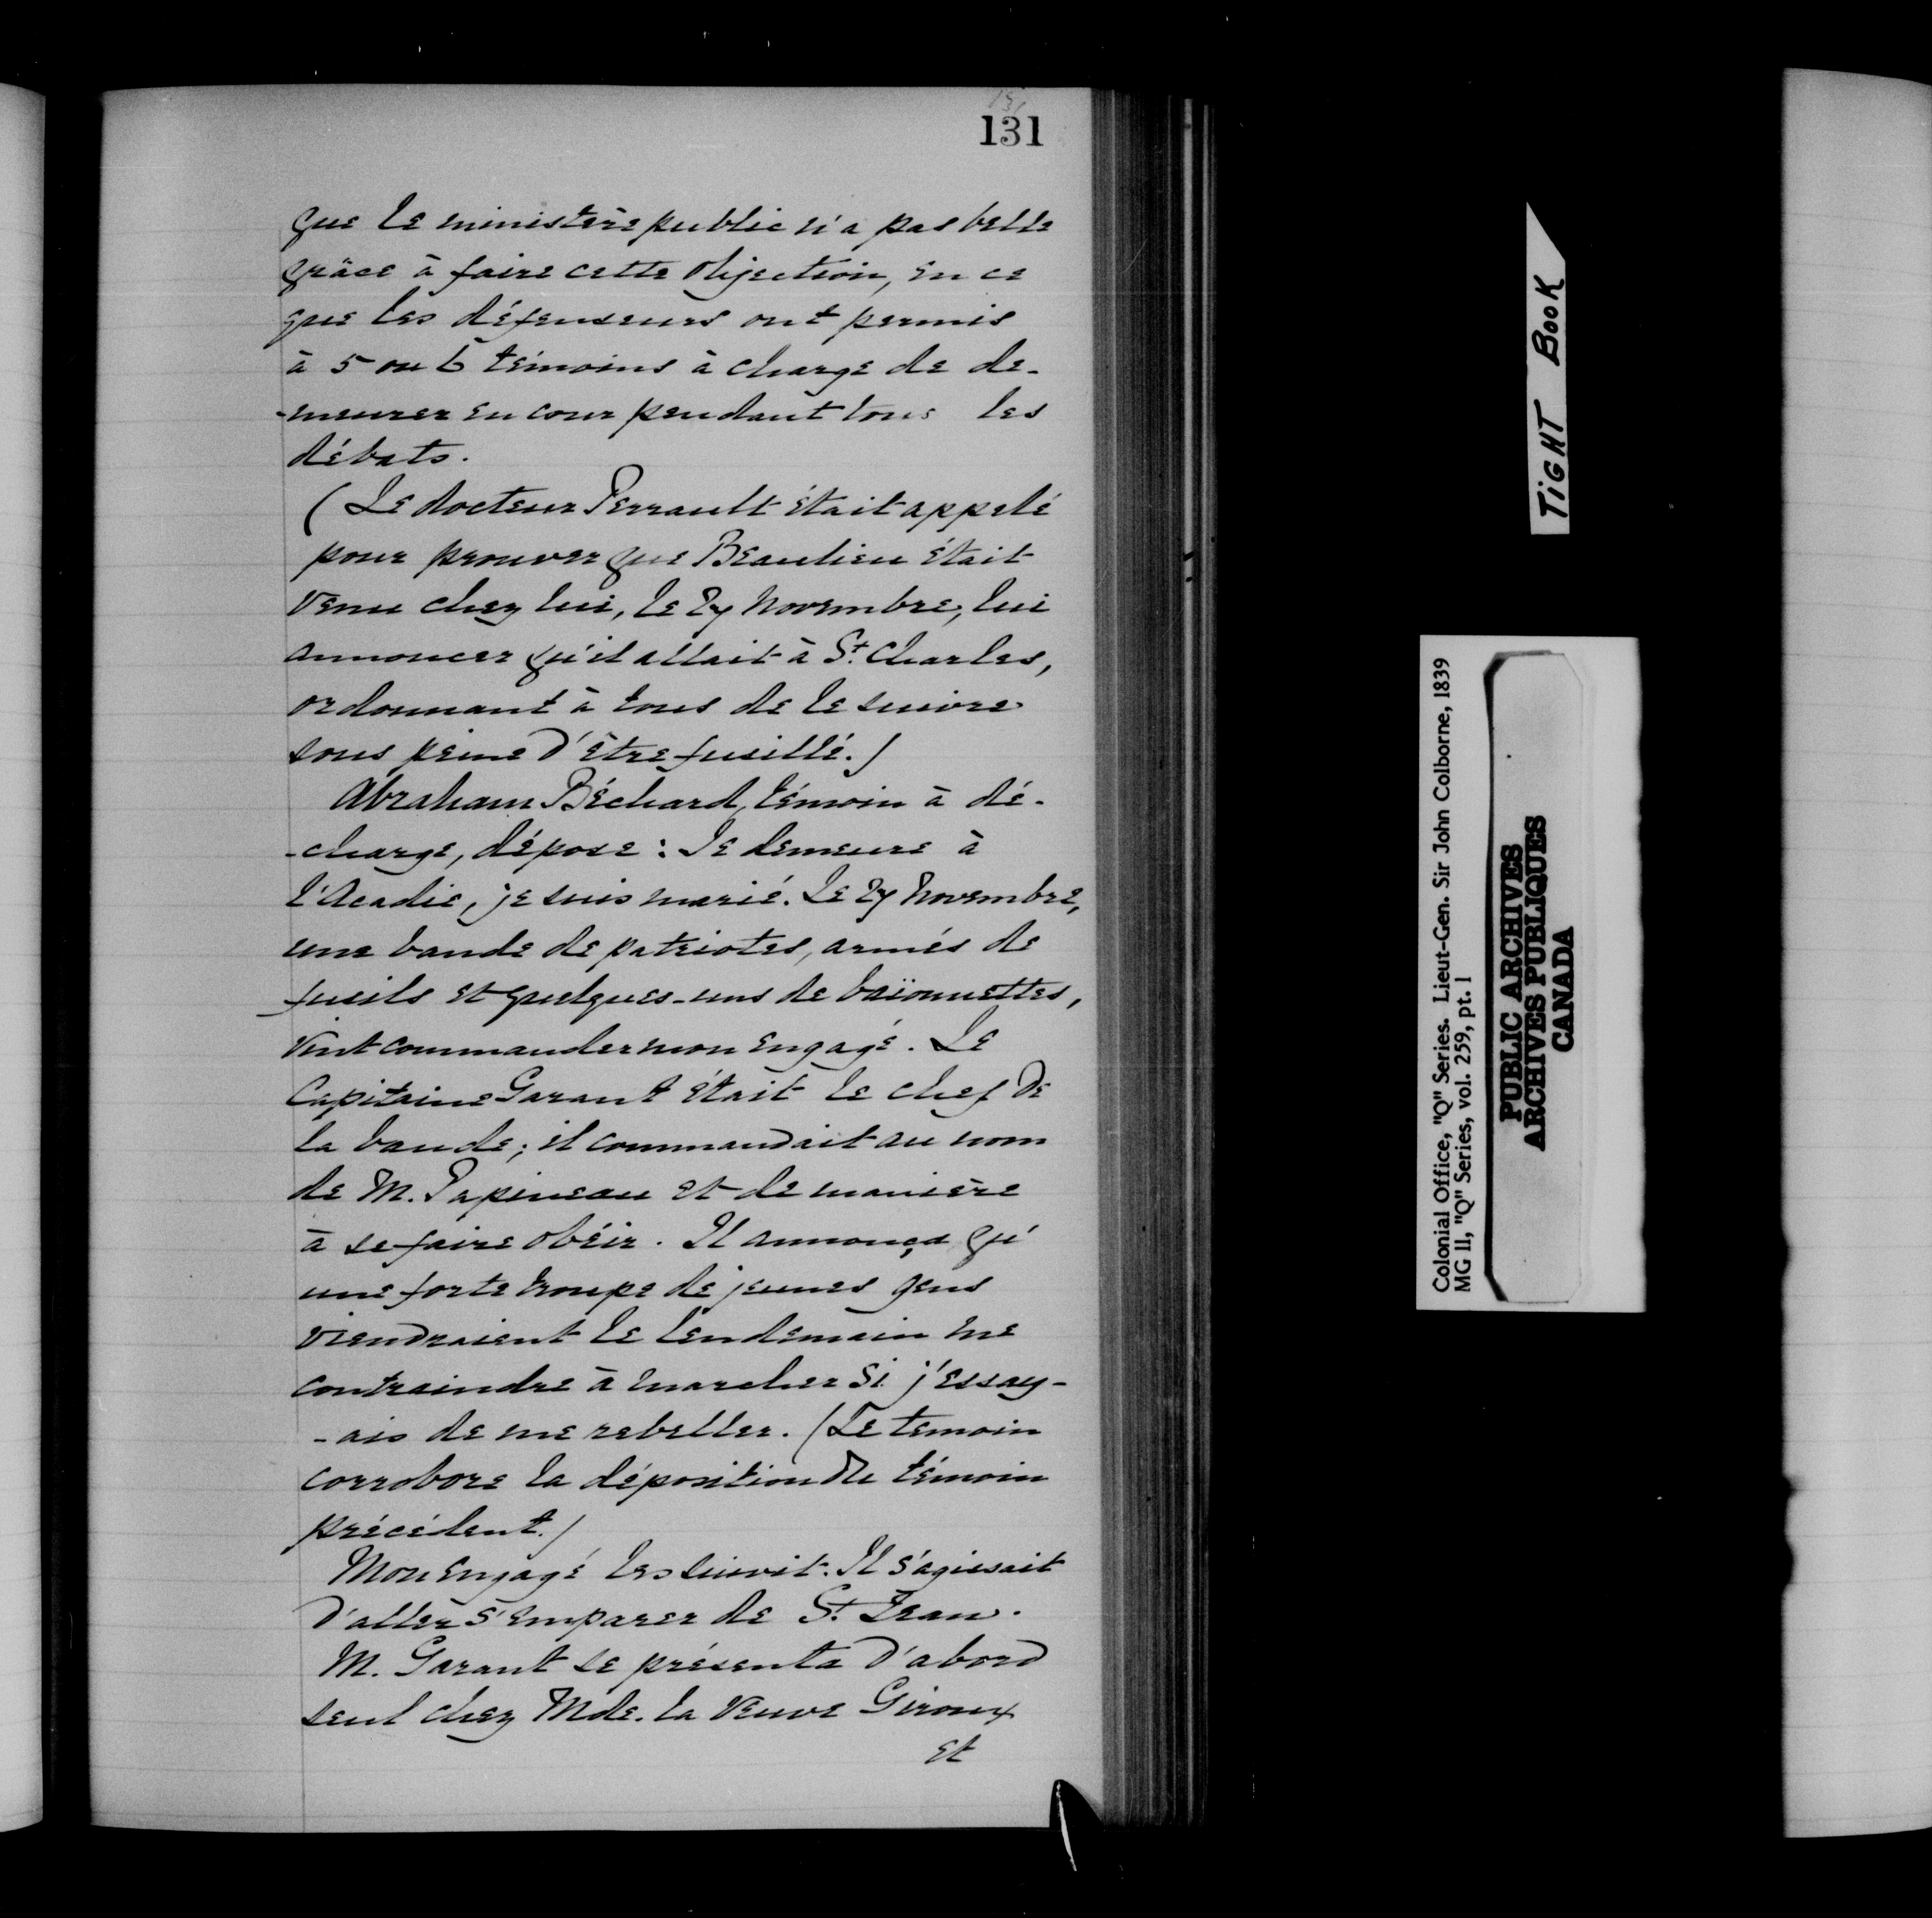 131
131
que le ministère public n'a pas belle
grâce à faire cette objection, en ce
que les défenseurs ont permis
à 5 ou 6 témoins à charge de de-
-meurer en cour pendant tous les
débats.
(Le docteur Perrault était appelé
pour prouver que Beaulieu était
venu chez lui, le 27 novembre, lui
annoncer qu'il allait à St. Charles,
ordonnant à tous de le suivre
sous peine d'être fusillé.)
Abraham Béchard, témoin à dé-
-charge, dépose: Je demeure à
l'Acadie, je suis marié. Le 27 novembre,
une bande de patriotes, armés de
fusils et quelques-uns de baïonnettes,
vint commander mon engagé. Le
Capitaine Garant était le chef de
la bande; il commandait au nom
de M. Papineau et de manière
à se faire obéir. Il annonça qu'
une forte troupe de jeunes gens
viendraient le lendemain me
contraindre à marcher si j'essay-
-ais de me rebeller. (Le temoin
corrobore la déposition du témoin
précédent.)
Mon engagé les suivit. Il s'agissait
d'aller s'emparer de St. Jean.
M. Garant se présenta d'abord
seul chez Mde. la veuve Giroux
et
TIGHT BOOK
Colonial Office, "Q" Series. Lieut-Gen. Sir John Colborne, 1839
MG 11, "Q" Series, vol. 259, pt. 1
PUBLIC ARCHIVES
ARCHIVES PUBLIQUES
CANADA